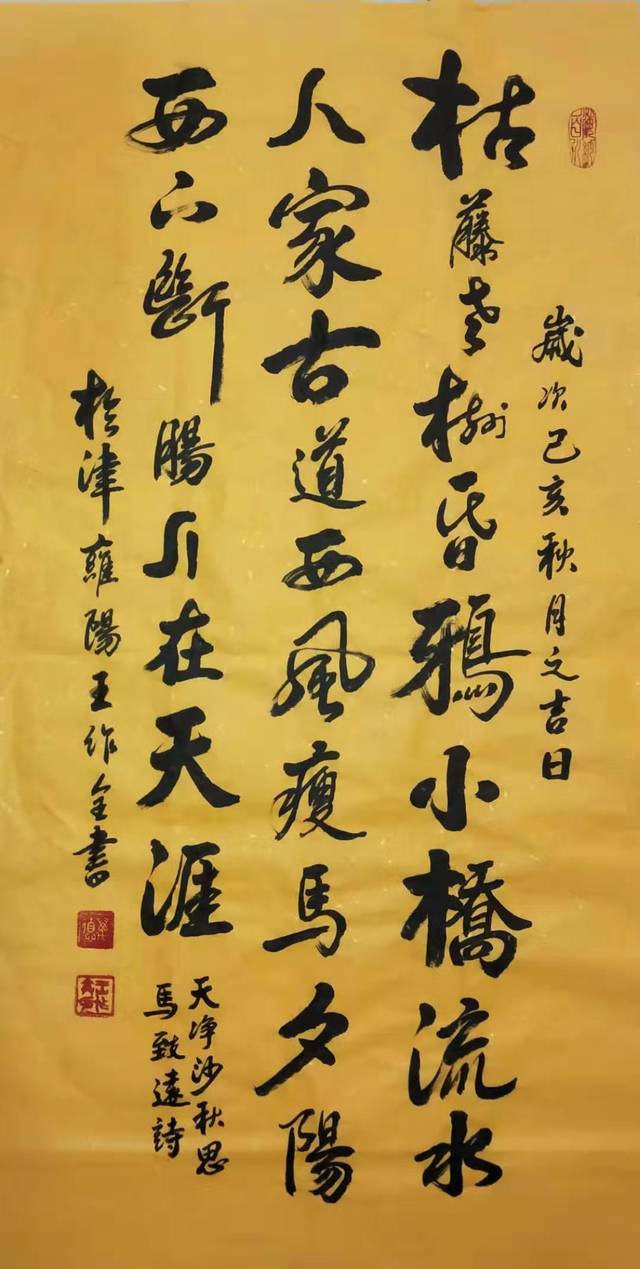 歲次己亥秋月之吉日
枯藤老樹昏鴉小橋流水
人家古道西風瘦馬夕陽
西下斷腸人在天涯
天净沙秋思
馬致遠詩
於津雍陽王作全書